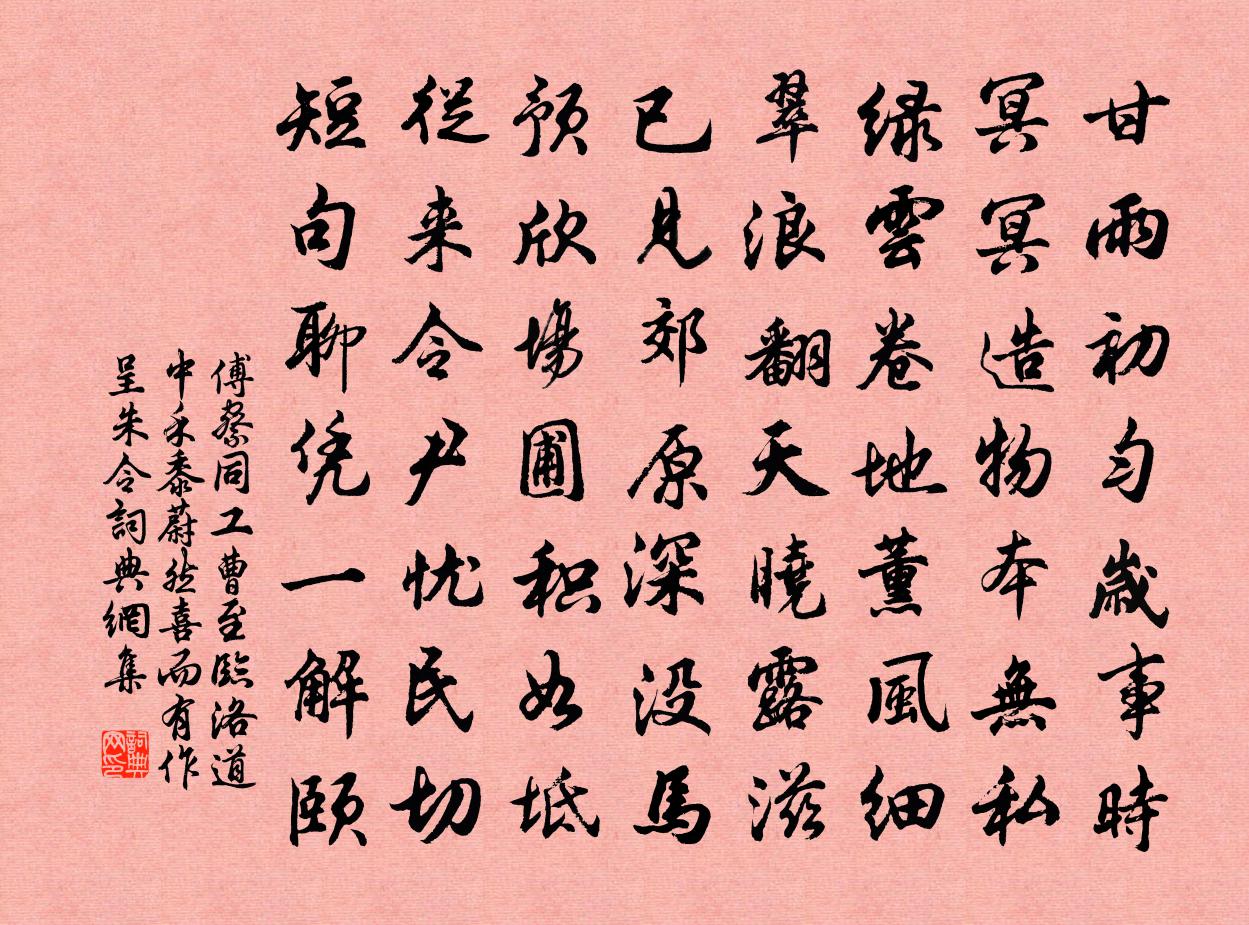 甘雨初匀歲事時
冥冥造物本無私
緑雲卷地薰風細
翠浪翻天曉露滋
已見郊原深没馬
預欣場圃积如坻
從来令尹忧民切
短句聊凭一解頤
傅察同工曹至臨洛道
中禾黍蔚然喜而有作
呈朱令詞典網集
詞典网印